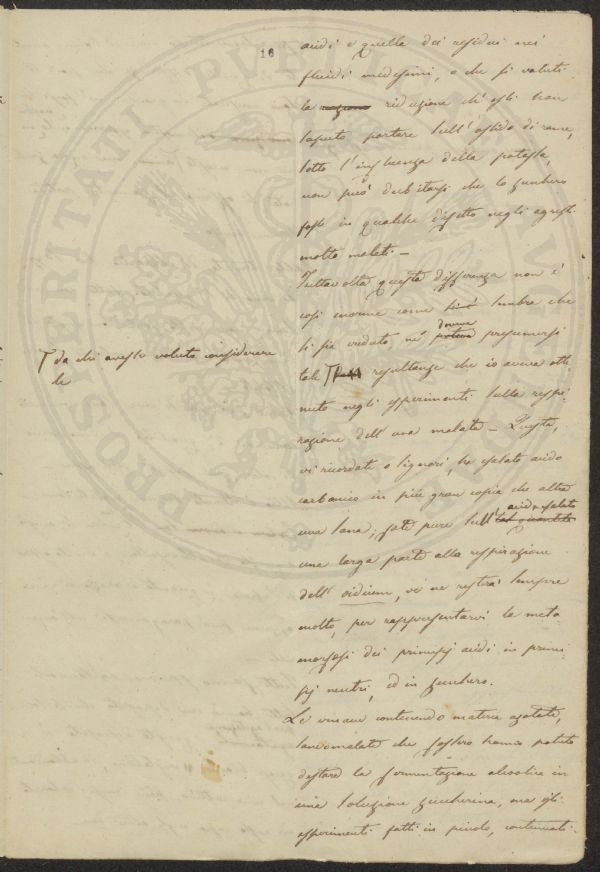 16
acidi e quella dei residui nei
fluidi medesimi, o che si valuti
la riduzione ch'essi han
saputo portare sull'ossido di rame,
sotto l'influenza della potassa,
non può dubitarsi che lo zucchero
fosse in qualche difetto negli agresti
molto malati. –
Tuttavolta questa differenza non è
così enorme come sembra che
si sia veduto, nè dovea presumersi
tale da chi avesse voluto considerare
le
resultanze che io aveva otte
nuto negli esperimenti sulla respi-
razione dell'uva malata – Questa,
vi ricordate o Signori, ha esalato acido
carbonico in più gran copia che altra
uva sana; fate pure sull'acido esalato
una larga parte alla respirazione
dell'oidium, ve ne resterà sempre
molto, per rappresentarvi la meta
morfosi dei principj acidi in princi
pj neutri, ed in zucchero.
Le vinacce contenendo materie azotate,
sane o malate che fossero hanno potuto
destare la fermentazione alcoolica in
una soluzione zuccherina, ma gli
esperimenti fatti in piccolo, continuati
PROSPERITATI PUBLICAE AUG